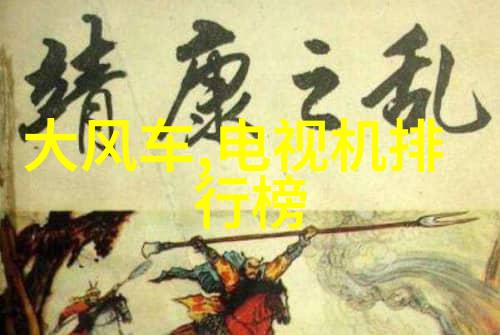 靖康之乱
大风车,电视机排
行榜